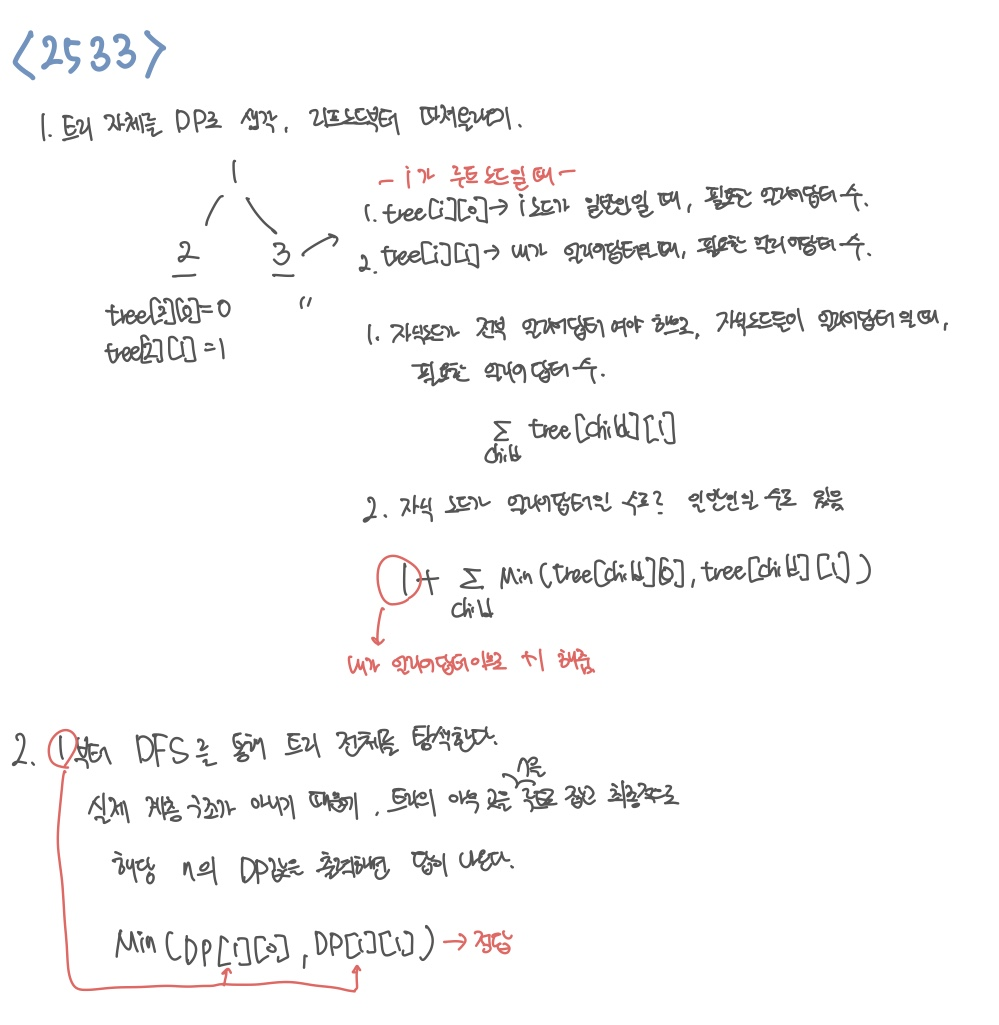 <2533>
1. 트리 자체를 DP로 생각, 리프노드부터 따져올라가기.
1
2 3
- i가 루트노드일때 -
1. tree[i][0] → i노드가 일반인일 때, 필요한 얼리어답터 수.
2. tree[i][1] → 내가 얼리어답터일때, 필요한 얼리어답터 수.
tree[2][0]=0 "
tree[2][1]=1
1. 자식노드가 전부 얼리어답터 여야 하므로, 자식노드들이 얼리어답터 일 때,
필요한 얼리어답터 수.
Σ tree[child][1]
child
2. 자식 노드가 얼리어답터일 수도? 일반인일 수도 있음
1 + Σ Min(tree[child][0], tree[child][1])
child
내가 얼리어답터이므로 +1 해줌
2. 1부터 DFS를 통해 트리 전체를 탐색한다.
n을
실제 계층 구조가 아니기 때문에, 트리의 아무 곳을 루트로 잡고 최종적으로
해당 n의 DP값을 출력하면 답이 나온다.
Min(DP[1][0], DP[1][1]) → 정답